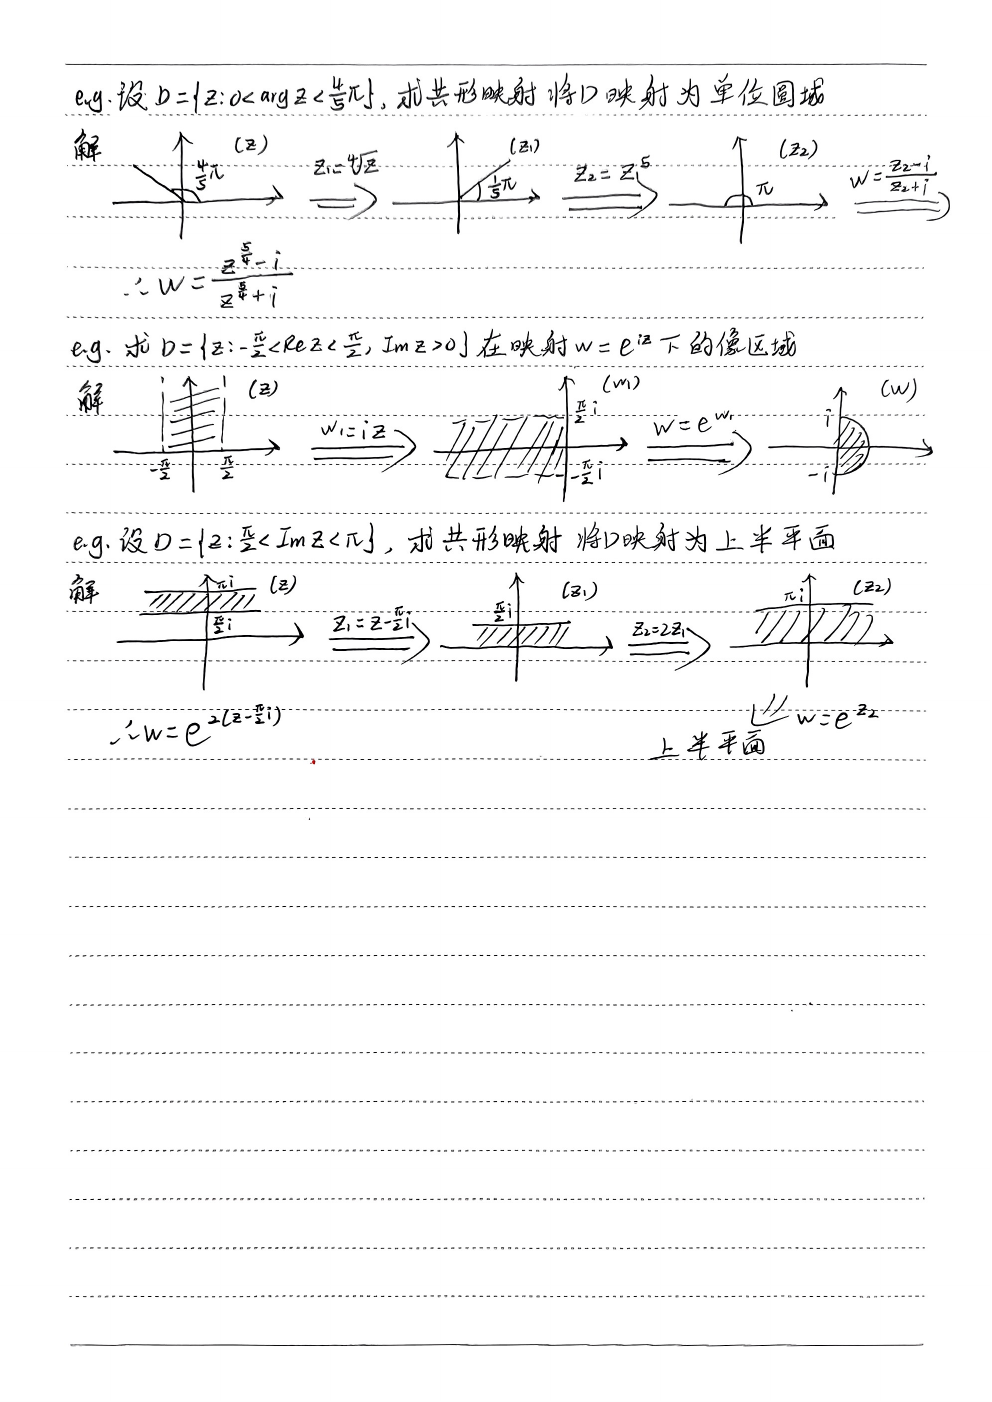 e.g. 设 D={z: 0<arg z<4/5 π}, 求共形映射将D映射为单位圆域
解 4/5 π (z) z₁=⁴√z 1/5 π (z₁) z₂=z₁⁵ π (z₂) w=(z₂-i)/(z₂+i)
∴ w=(z^(5/4)-i)/(z^(5/4)+i)
e.g. 求 D={z: -π/2<Re z<π/2, Im z>0} 在映射 w=e^(iz) 下的像区域
解 -π/2 π/2 (z) w₁=iz π/2 i -π/2 i (w₁) w=e^(w₁) i -i (w)
e.g. 设 D={z: π/2<Im z<π}, 求共形映射将D映射为上半平面
解 πi π/2 i (z) z₁=z-π/2 i π/2 i (z₁) z₂=2z₁ πi (z₂)
∴ w=e^(2(z-π/2 i)) w=e^(z₂)
上半平面